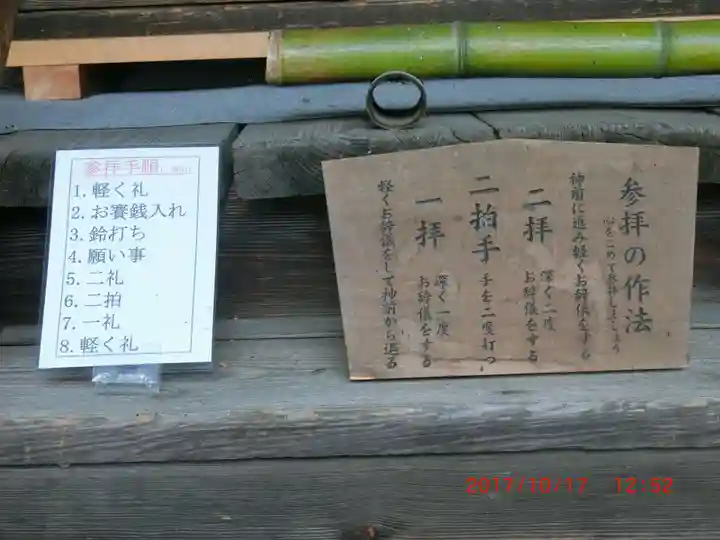 参拝手順
1. 軽く礼
2. お賽銭入れ
3. 鈴打ち
4. 願い事
5. 二礼
6. 二拍
7. 一礼
8. 軽く礼
参拝の作法
心をこめて参拝しましょう
神前に進み軽くお辞儀をする
二拝 深く二度お辞儀をする
二拍手 手を二度打つ
一拝 深く一度お辞儀をする
軽くお辞儀をして神前から退る
2017/10/17 12:52